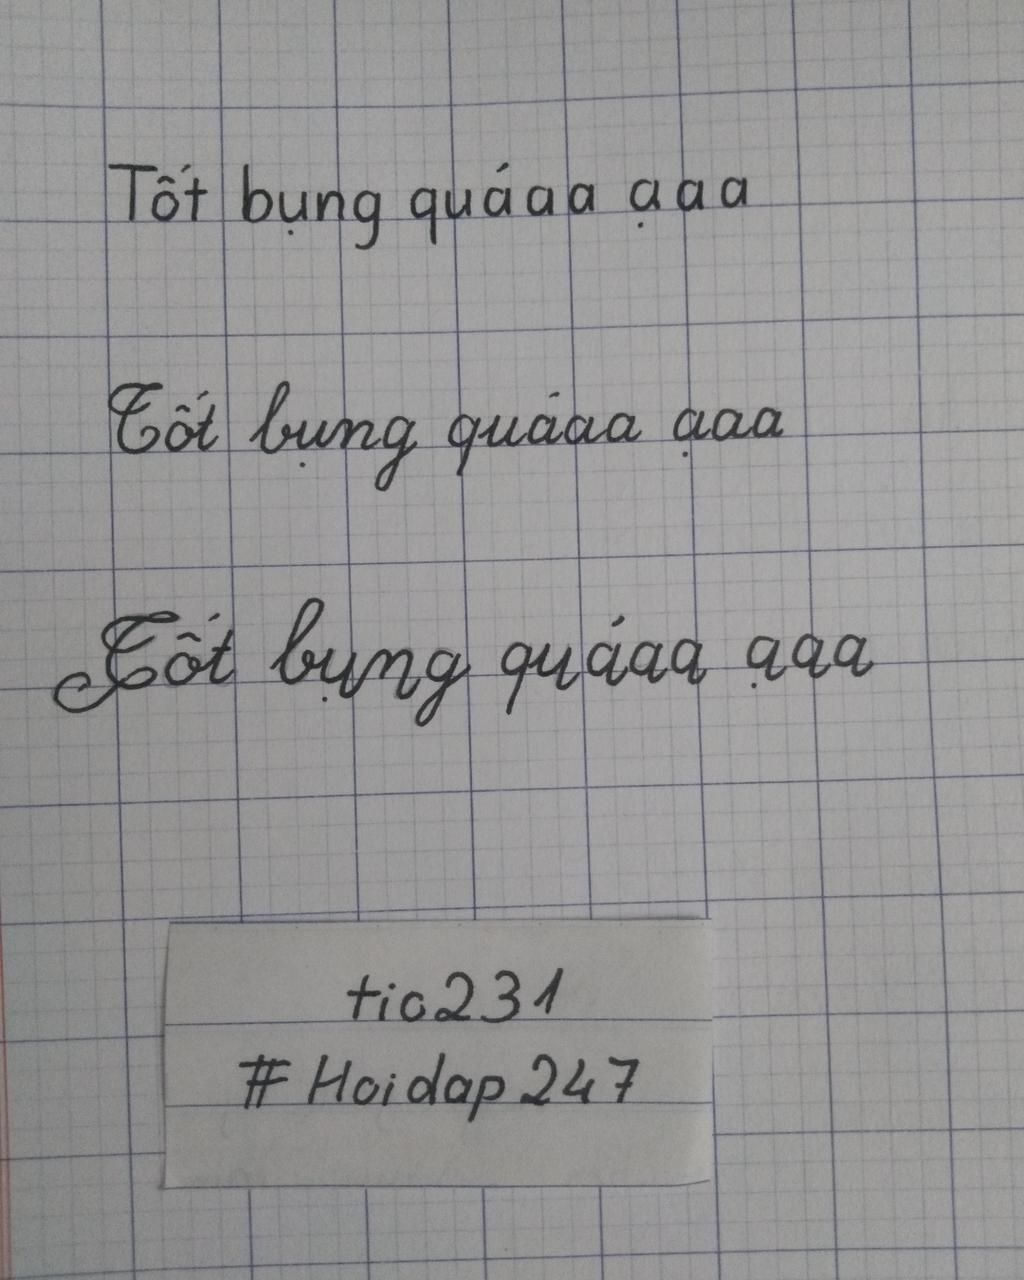 Tốt bụng quáaa ạaa
Tốt bụng quáaa ạaa
Tốt bụng quáaa ạaa
tic231
#Hoidap247